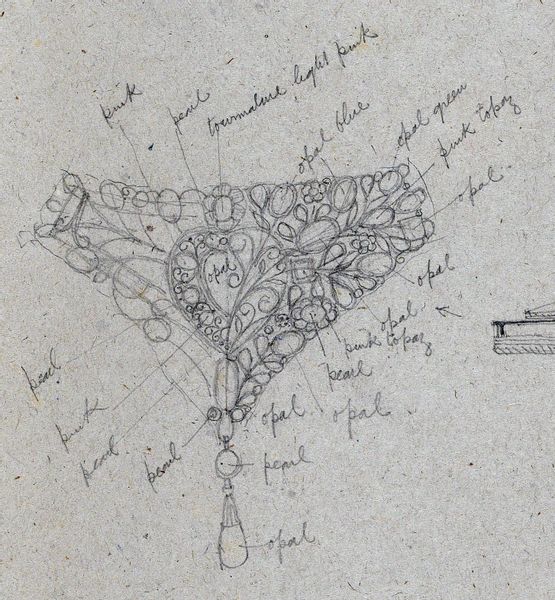 pink
pearl
tourmaline light pink
opal blue
opal green
pink topaz
opal.
opal
opal
pink opal
pink topaz
pearl
pearl
pink
pearl
pearl
opal
opal
pearl
opal